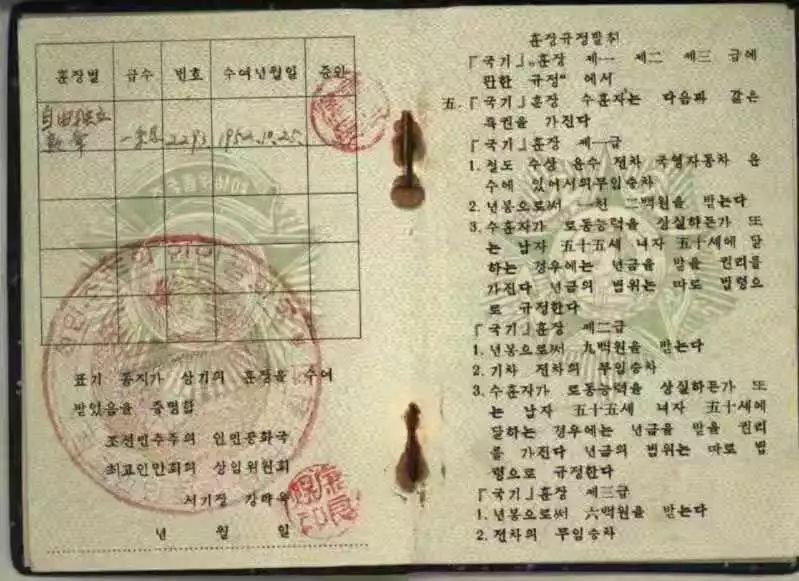 훈장별 급수 번호 수여년월일 증인
自由独立 一米 2293 1954.10.25.
勲章
표기 동지가 상기의 훈장을 수여
받었음을 증명함
조선민주주의 인민공화국
최고인민회의 상임위원회
서기장 강량욱
년 월 일
훈장규정발취
『국기』훈장 제一 제二 제三 급에
관한 규정" 에서
五.『국기』훈장 수훈자는 다음과 같은
특권을 가진다
『국기』훈장 제一급
1. 철도 수상 운수 전차 국영자동차 운
수에 있어서의무임승차
2. 년봉으로써 一천 二백원을 받는다
3. 수훈자가 로동능력을 상실하든가 또
는 남자 五十五세 녀자 五十세에 달
하는 경우에는 년금을 받을 권리를
가진다 년금의 범위는 따로 법령으
로 규정한다
『국기』훈장 제二급
1. 년봉으로써 九백원을 받는다
2. 기차 전차의 무임승차
3. 수훈자가 로동능력을 상실하든가 또
는 남자 五十五세 녀자 五十세에
달하는 경우에는 년금을 받을 권리
를 가진다 년금의 범위는 따로 법
령으로 규정한다
『국기』훈장 제三급
1. 년봉으로써 六백원을 받는다
2. 전차의 무임승차